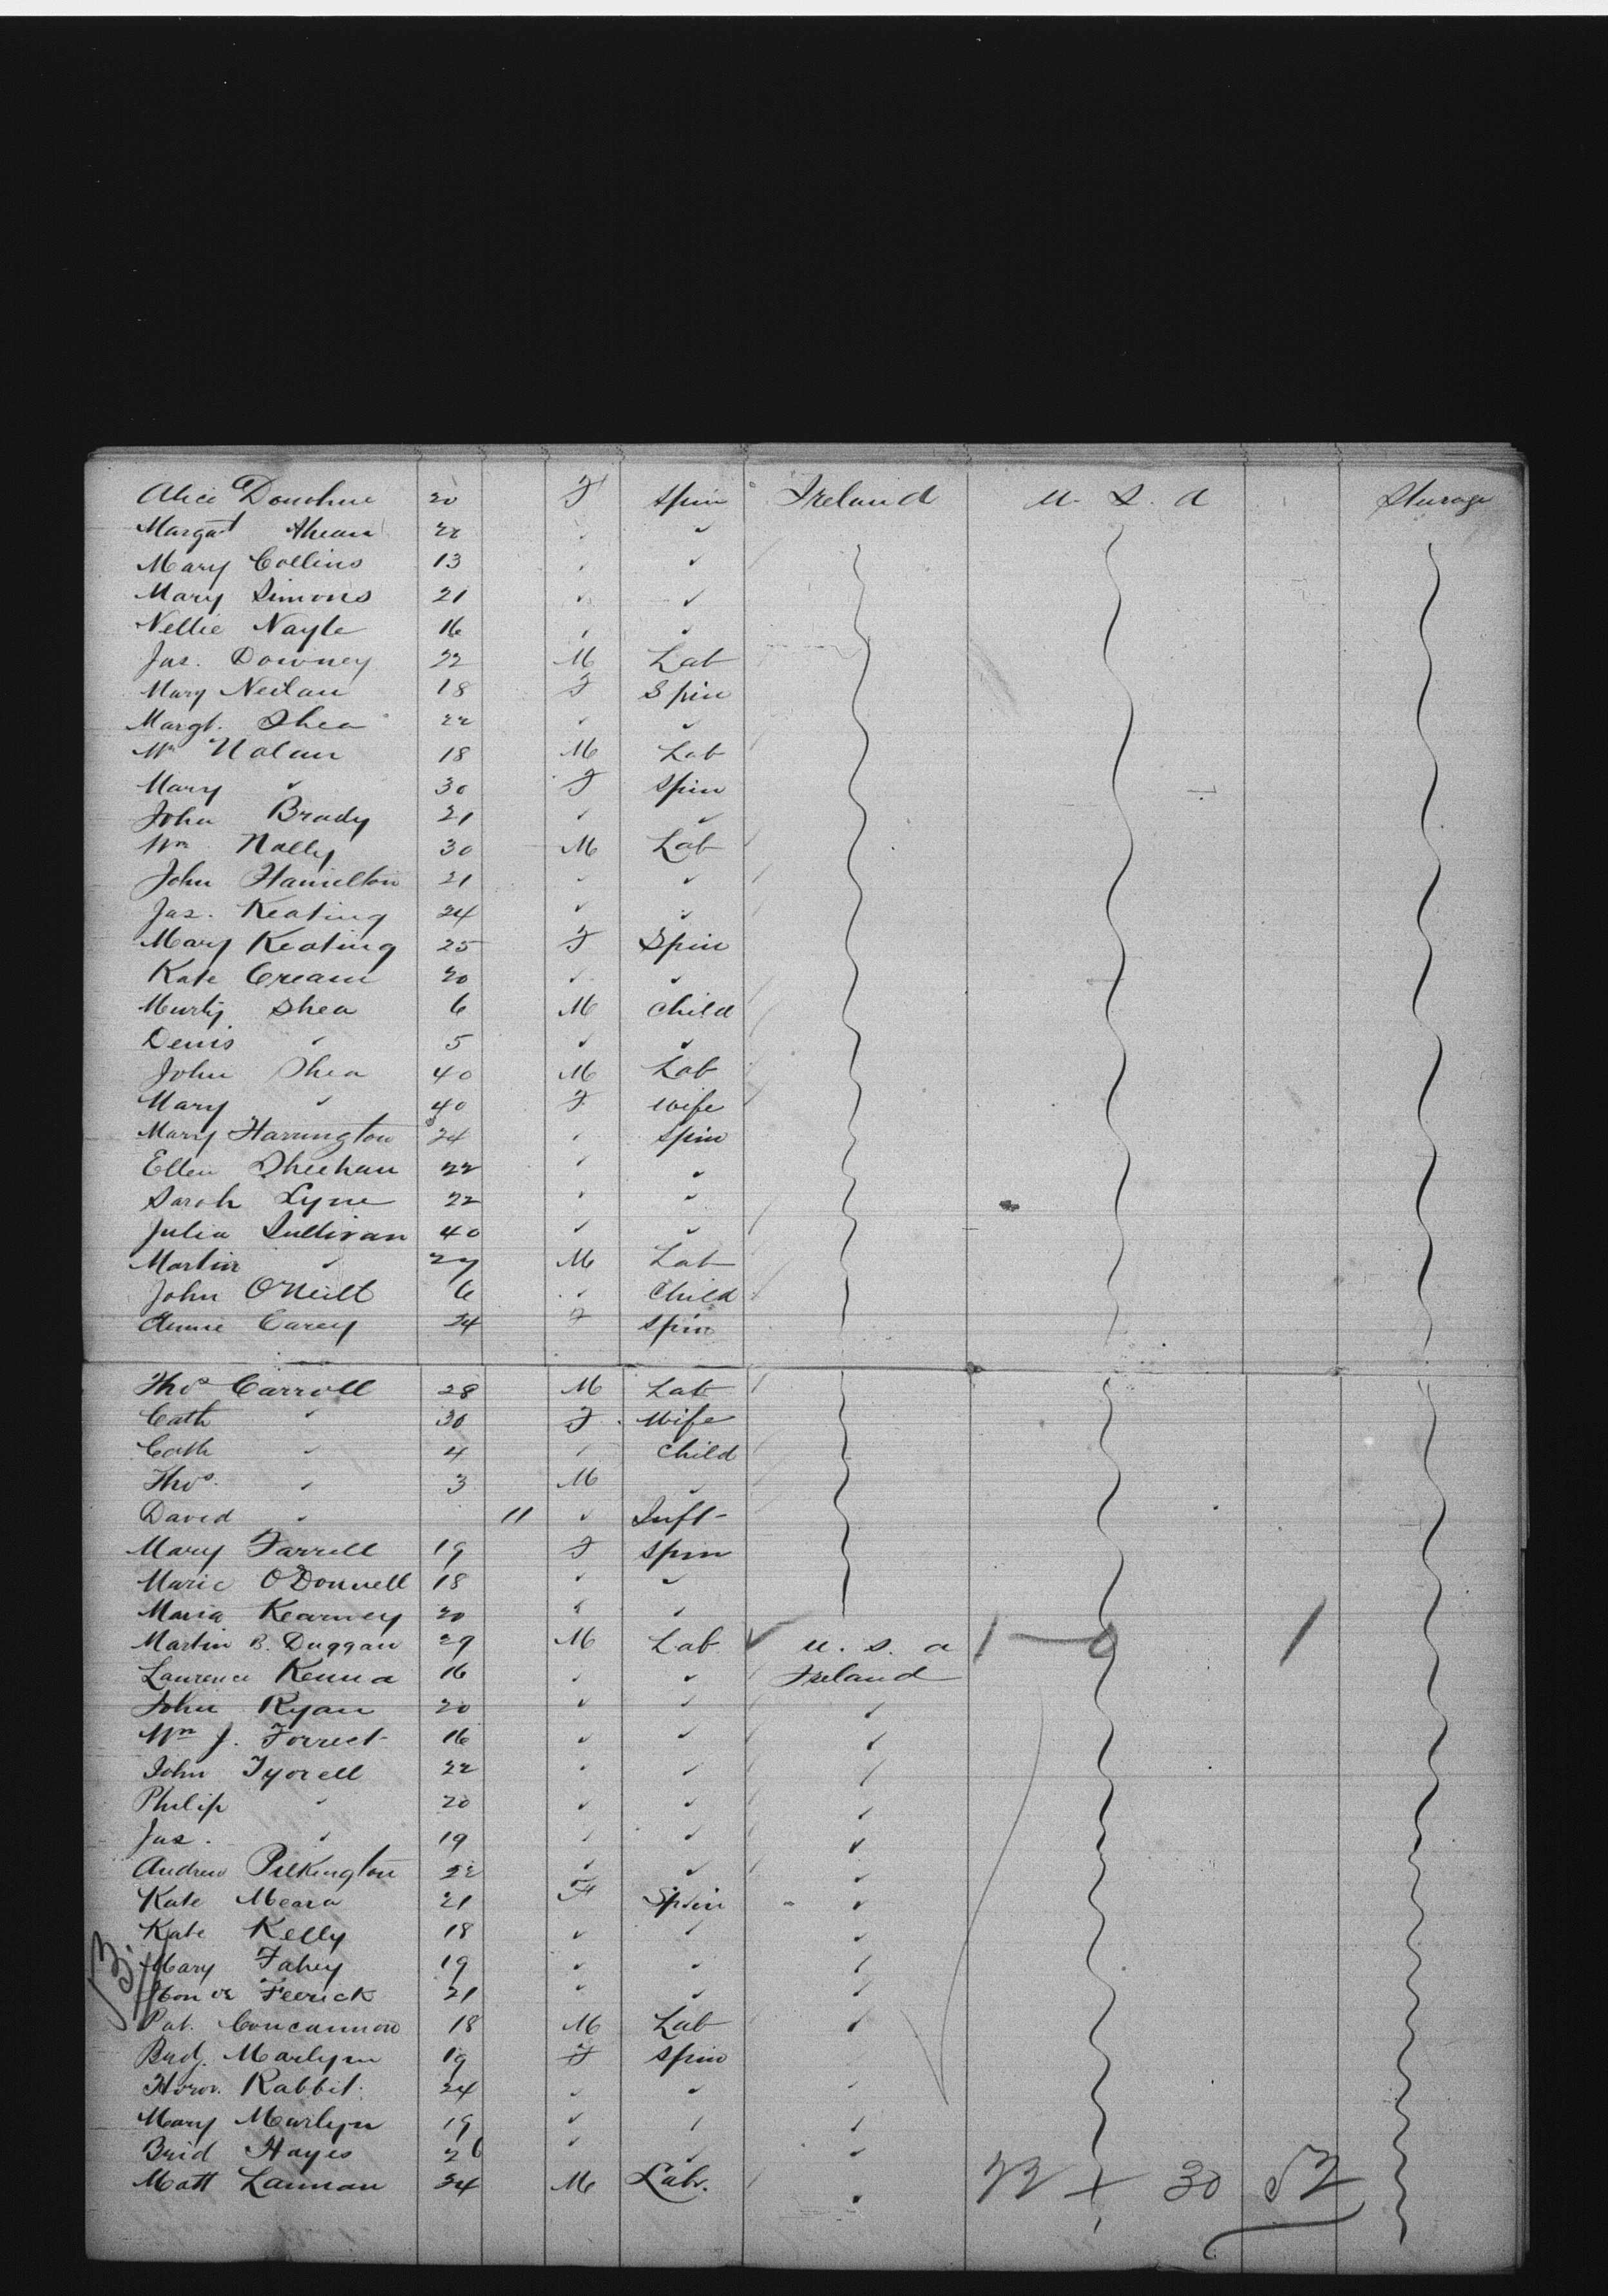 Alice Donohue 20 F Spin Ireland U. S. A Sturage
Margat Ahean 22 " "
Mary Collins 13 " "
Mary Simons 21 " "
Nellie Nayle 16 " "
Jas. Downey 22 M Lab
Mary Neilan 18 F Spin
Margt. Shea 22 " "
Wm Nolan 18 M Lab
Mary " 30 F Spin
John Brady 21 " "
Wm Nally 30 M Lab
John Hamilton 21 " "
Jas. Keating 24 " "
Mary Keating 25 F Spin
Kate Cream 20 " "
Murty Shea 6 M Child
Denis " 5 " "
John Shea 40 M Lab
Mary " 40 F Wife
Mary Harrington 24 " Spin
Ellen Sheehan 22 " "
Sarah Lyne 22 " "
Julia Sullivan 40 " "
Martin " 27 M Lab
John O'Neill 6 " Child
Annie Carey 24 F Spin
Thos Carroll 28 M Lab
Cath " 30 F Wife
Cath " 4 " Child
Thos. " 3 M "
David " 11 " Inft-
Mary Farrell 19 F Spin
Marie O'Donnell 18 " "
Maria Kearney 20 " "
Martin B. Duggan 29 M Lab U. S. A 1 — 0 1
Laurence Kenna 16 " " Ireland
John Ryan 20 " " "
Wm J. Forrest 16 " " "
John Tyorell 22 " " "
Philip " 20 " " "
Jas. " 19 " " "
Andrew Pilkington 22 " " "
Kate Meara 21 F Spin "
Kate Kelly 18 " " "
Mary Fahey 19 " " "
Feerick 21 " " "
Pat. Concannon 18 M Lab "
Brdg. Marlyn 19 F Spin "
Honor. Rabbit. 24 " " "
Mary Marlyn 19 " " "
Brid Hayes 26 " " "
Matt Lannan 24 M Labr. " 22 + 30 52